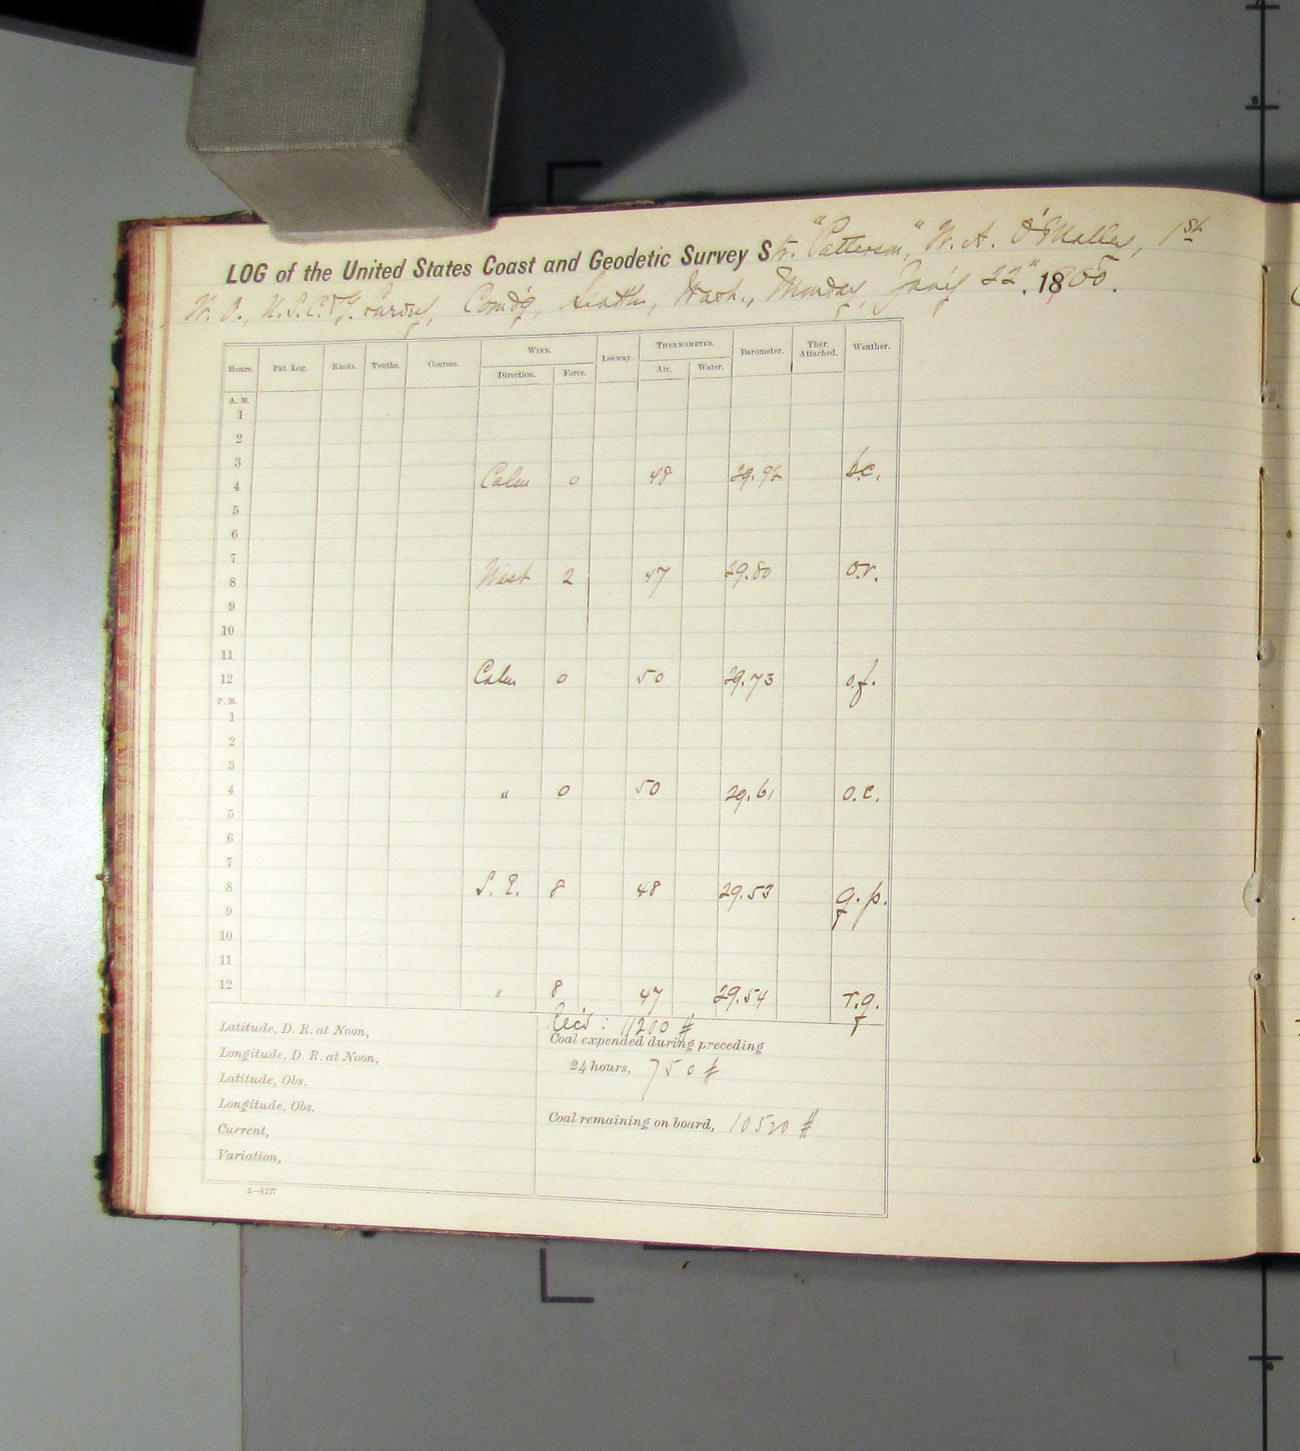 LOG of the United States Coast and Geodetic Survey Str. "Patterson," W. A. O'Malley, 1st
W. O., U.S.C.&G. Survey, Comd'g, Seattle, Wash., Monday, Jan'y 22", 1800.
Hours. Pat. Log. Knots. Tenths. Courses. WIND. Leeway. THERMOMETER. Barometer. Ther. Attached. Weather.
Direction. Force. Air. Water.
A. M.
1
2
3
4 Calm 0 48 29.92 b.c.
5
6
7
8 West 2 47 29.80 o.r.
9
10
11
12 Calm 0 50 29.73 o.f.
P. M.
1
2
3
4 " 0 50 29.61 o.c.
5
6
7
8 S. E. 8 48 29.53 q.p.
9
10
11
12 " 8 47 29.54 r.q.
Latitude, D. R. at Noon,
Longitude, D. R. at Noon,
Latitude, Obs.
Longitude, Obs.
Current,
Variation,
Rec'd : 11200 #
Coal expended during preceding
24 hours, 750 #
Coal remaining on board, 10520 #
2—1727